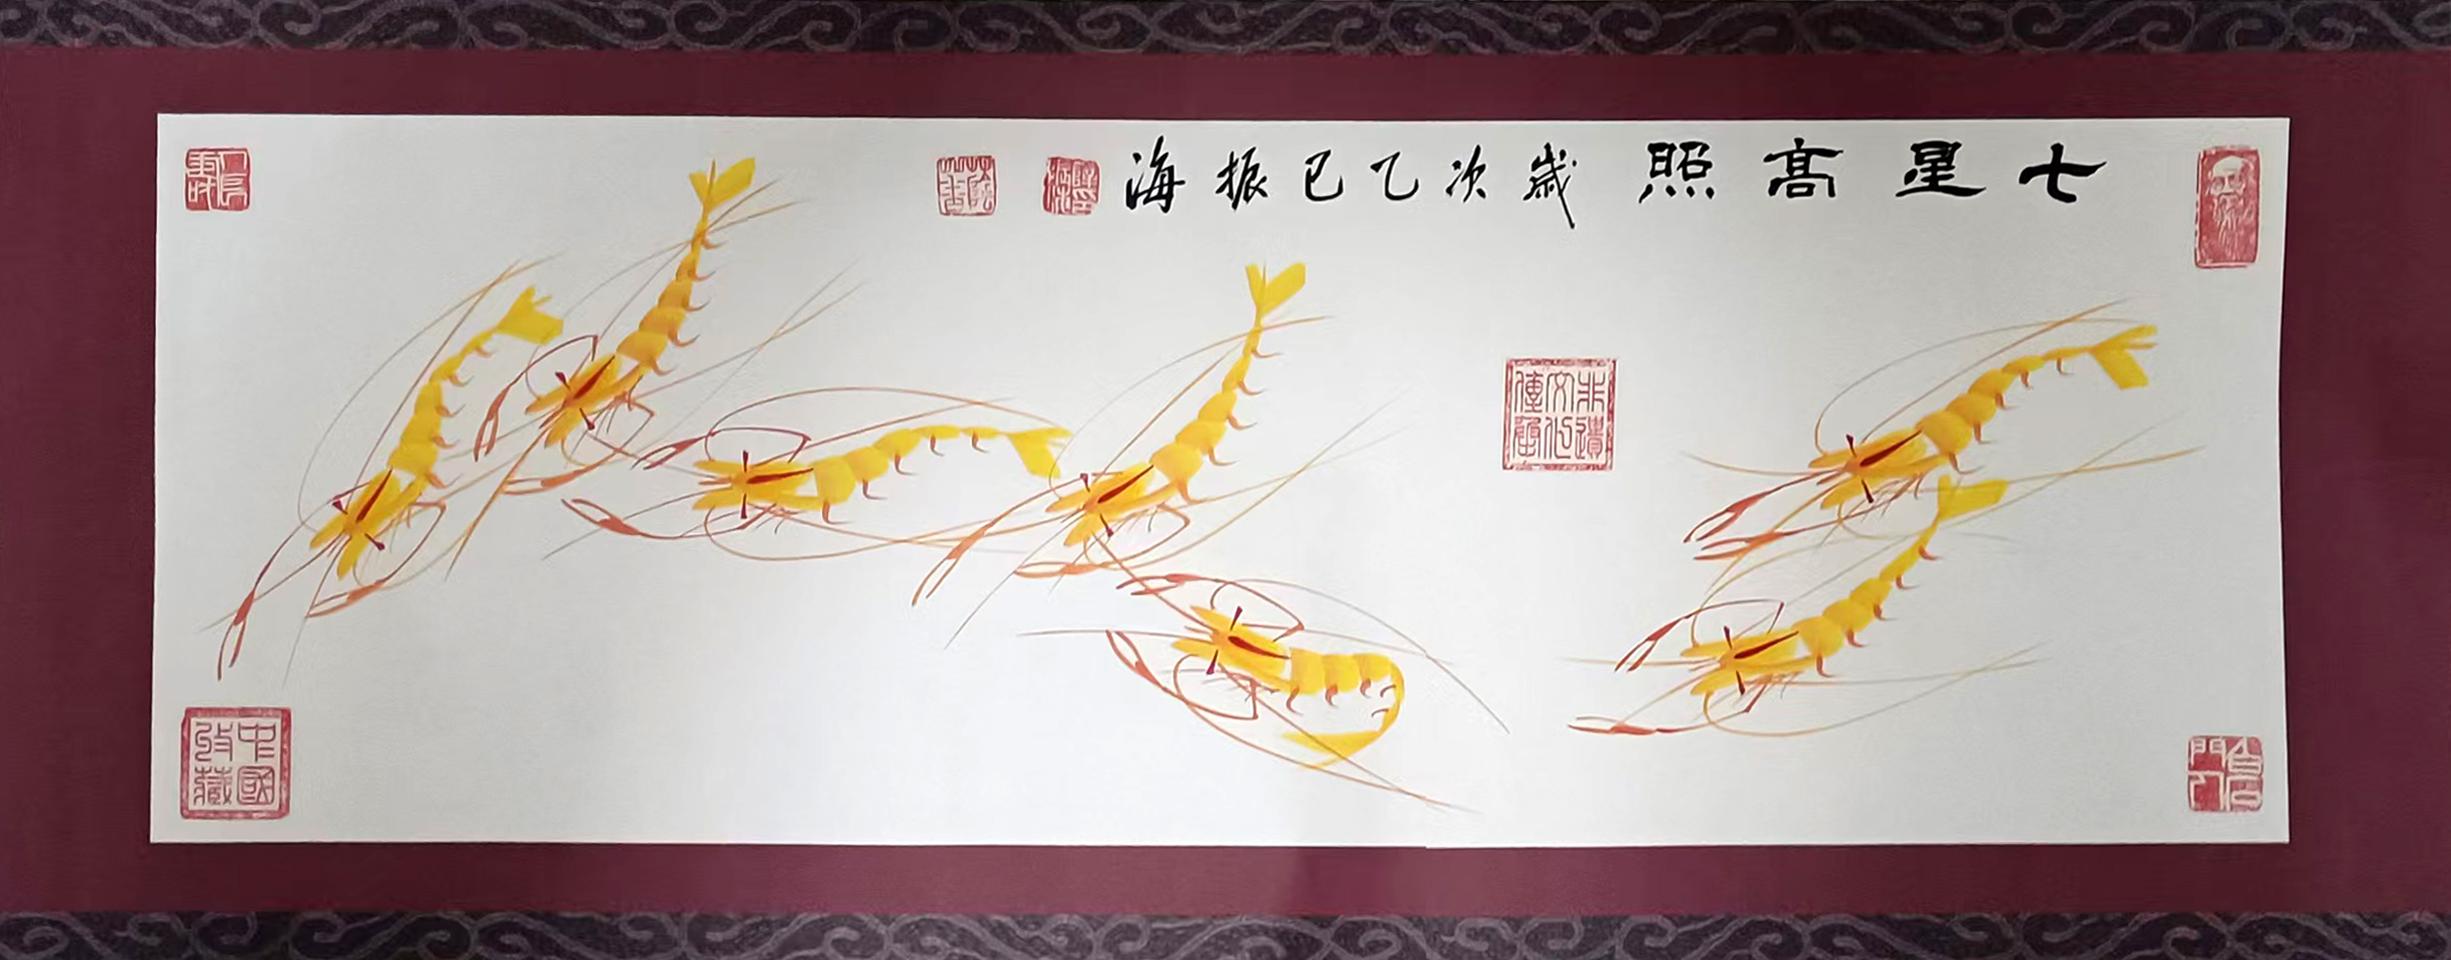 七星高照
歲次乙巳振海
非遺文化傳承
中國收藏